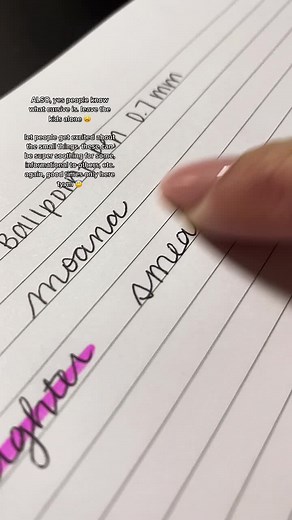 ALSO, yes people know
what cursive is. leave the
kids alone 😄
let people get excited about
the small things. these can
be super soothing for some,
informational to others, etc.
again, good times only here
Ballpoint pen 0.7mm
moana
smea